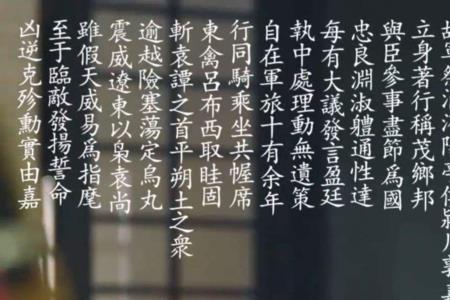 立身著行稱茂鄉邦
與臣參事盡節為國
忠良淵淑軆通性達
每有大議發言盈廷
執中處理動無遺策
自在軍旅十有余年
行同騎乘坐共幄席
東禽呂布西取眭固
斬袁譚之首平朔土之衆
逾越險塞蕩定烏丸
震威遼東以梟袁尚
雖假天威易為指麾
至于臨敵發揚誓命
凶逆克殄勳實由嘉